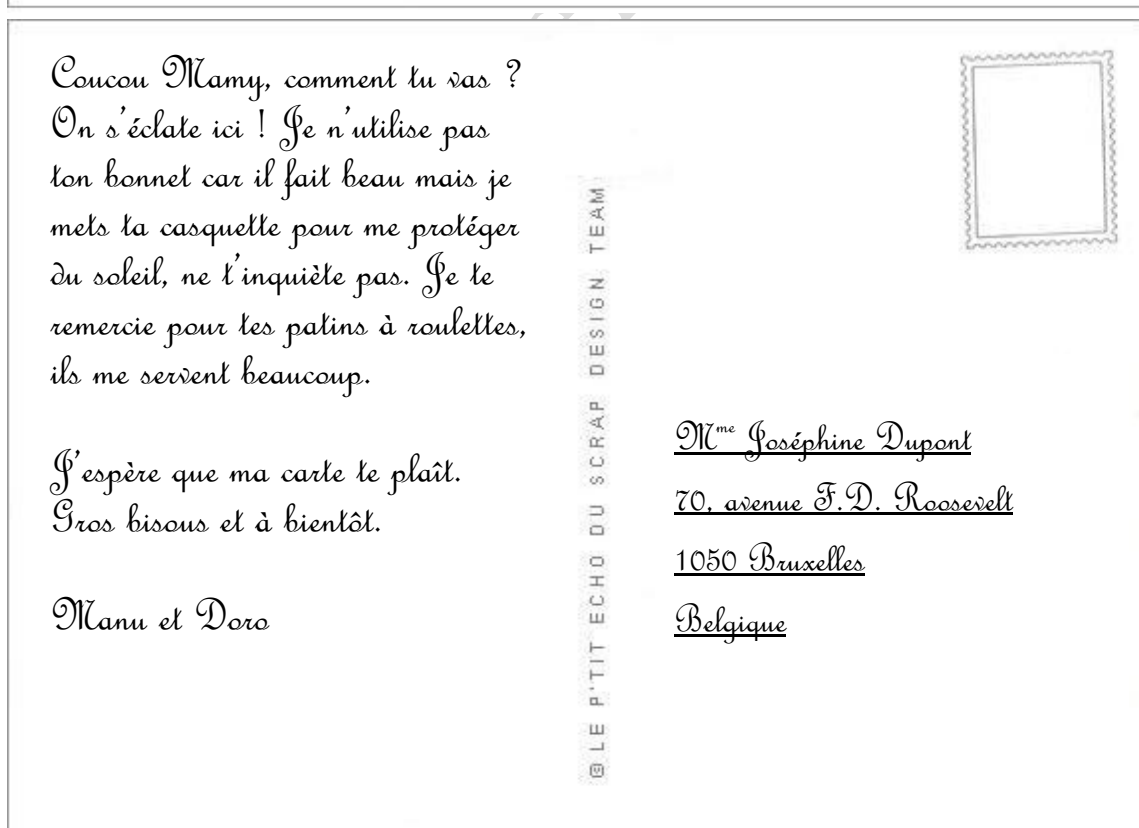 Coucou Mamy, comment tu vas ?
On s'éclate ici ! Je n'utilise pas
ton bonnet car il fait beau mais je
mets ta casquette pour me protéger
du soleil, ne t'inquiète pas. Je te
remercie pour tes patins à roulettes,
ils me servent beaucoup.
J'espère que ma carte te plaît.
Gros bisous et à bientôt.
Manu et Doro
© LE P'TIT ECHO DU SCRAP DESIGN TEAM
Mme Joséphine Dupont
70, avenue F.D. Roosevelt
1050 Bruxelles
Belgique